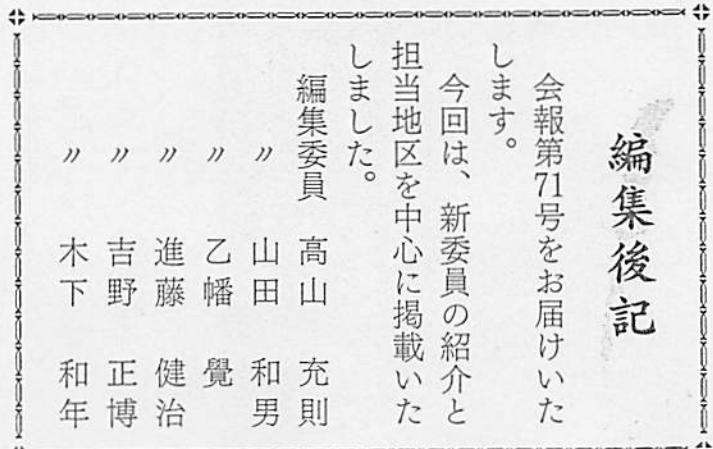 編集後記
会報第71号をお届けいた
します。
今回は、新委員の紹介と
担当地区を中心に掲載いた
しました。
編集委員 高山 充則
〃 山田 和男
〃 乙幡 覺
〃 進藤 健治
〃 吉野 正博
〃 木下 和年